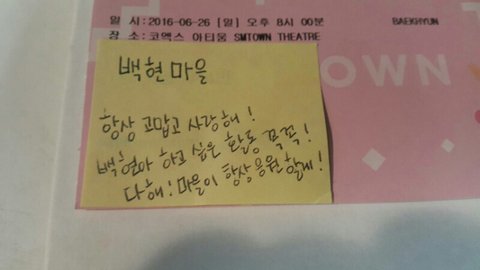 일 시:2016-06-26 [일] 오후 8시 00분 BAEKHYUN
장 소:코엑스 아티움 SMTOWN THEATRE
TOWN
백현마을
항상 고맙고 사랑해!
백현아 하고 싶은 활동 꼭꼭!
다해! 마을이 항상 응원할게!